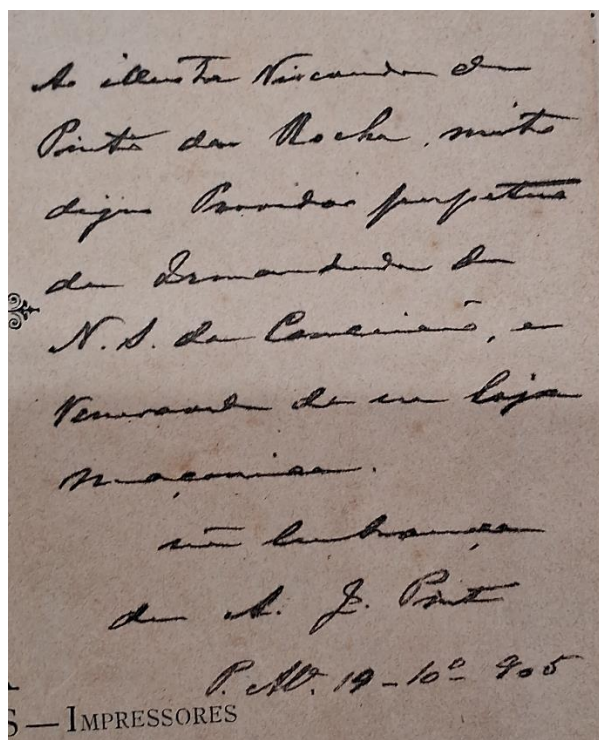 Ao illustre Visconde de
Pinto da Rocha, muito
digno Provedor perpetuo
da Irmandade de
N. S. da Conceição, e
Veneravel de uma loja
maçonica.
lembrança
de A. J. Pinto
P. Al. 19-10º 905
S — IMPRESSORES